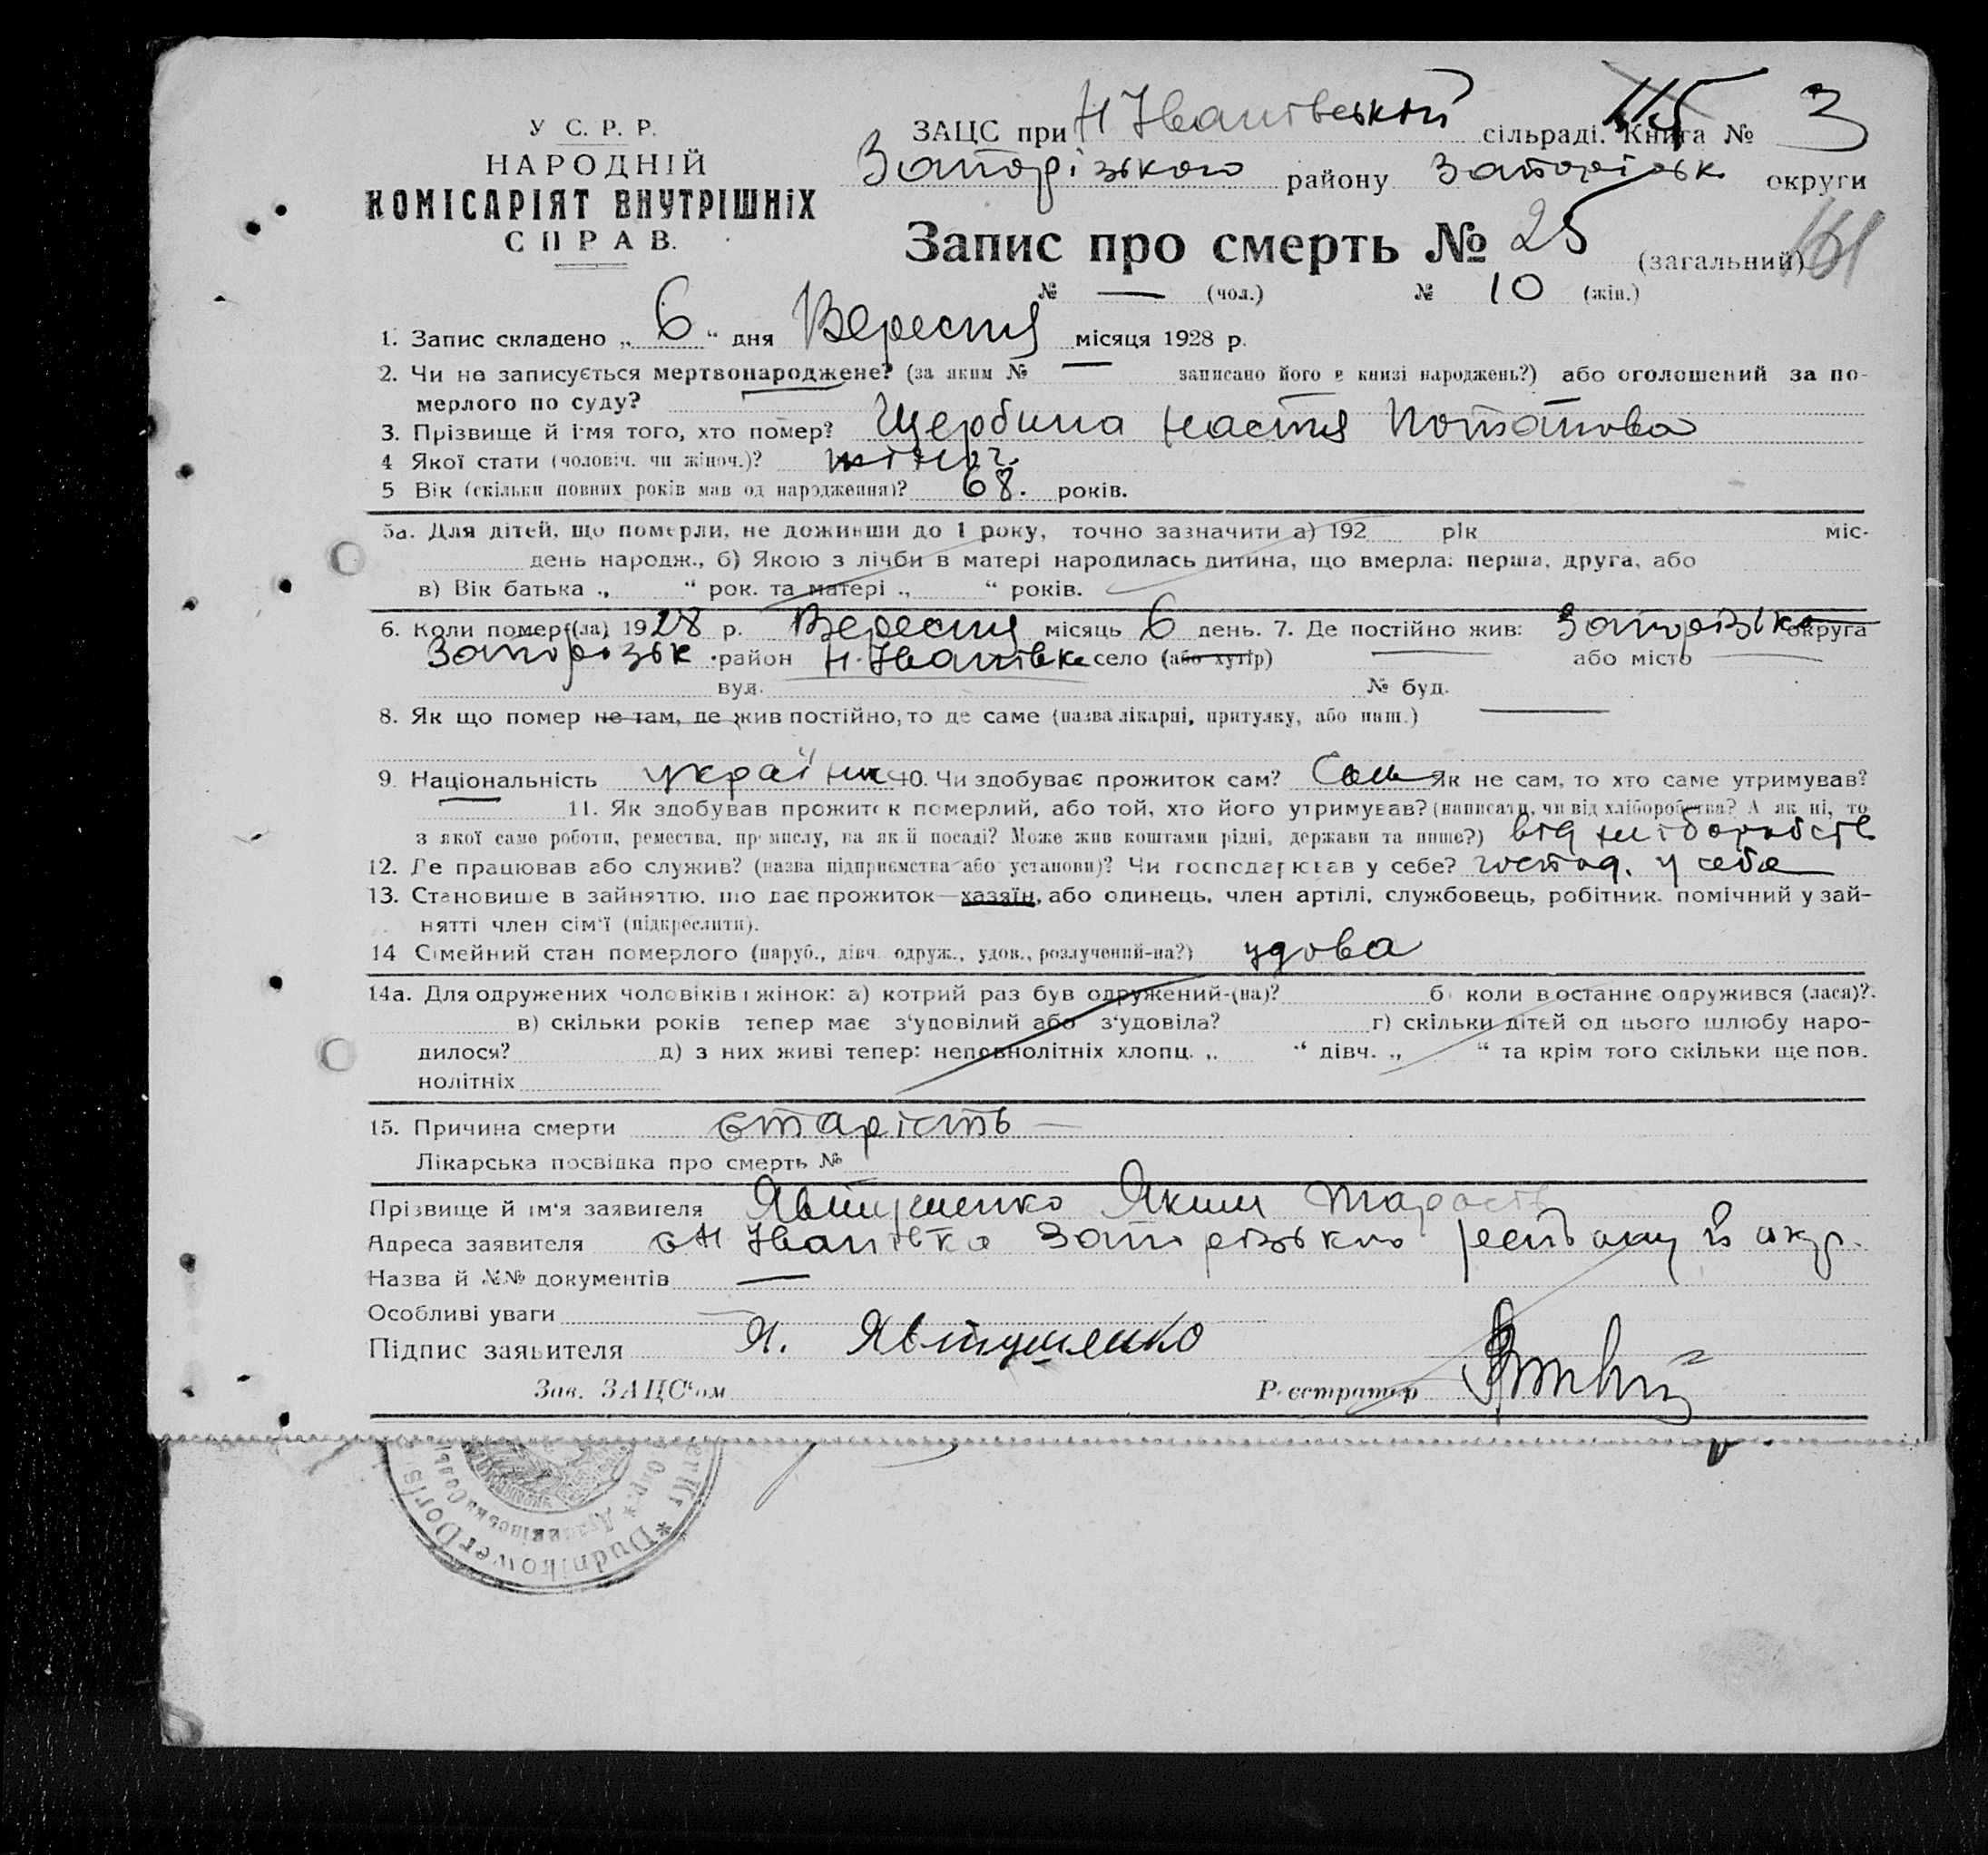 У С. Р. Р.
НАРОДНІЙ
КОМІСАРІЯТ ВНУТРІШНІХ
СПРАВ.
ЗАЦС при Н Іванівській сільраді. Книга № 3
Запорізького району Запорізьк. округи
Запис про смерть № 25 (загальний)
№ — (чол.) № 10 (жін.)
1. Запис складено „ 6 “ дня Вересня місяця 1928 р.
2. Чи не записується мертвонароджене? (за яким № — записано його в книзі народжень?) або оголошений за по-
мерлого по суду? —
3. Прізвище й ім'я того, хто помер? Щербина Настя Потапова
4 Якої стати (чоловіч. чи жіноч.)? жіноч.
5 Вік (скільки повних років мав од народження)? 68. років.
5а. Для дітей, що померли, не доживши до 1 року, точно зазначити а) 192 рік міс-
день народж., б) Якою з лічби в матері народилась дитина, що вмерла: перша, друга, або
в) Вік батька „ “ рок. та матері „ “ років.
6. Коли помер(ла) 1928 р. Вересня місяць 6 день. 7. Де постійно жив: Запорізька округа
Запорізьк район Н. Іванівка село (або хутір) або місто
вул. № буд.
8. Як що помер не там, де жив постійно, то де саме (назва лікарні, притулку, або инш.) —
9. Національність україн 10. Чи здобуває прожиток сам? Сам Як не сам, то хто саме утримував?
11. Як здобував прожиток померлий, або той, хто його утримував? (написати, чи від хліборобства? А як ні, то
з якої саме роботи, ремества, промислу, на якій посаді? Може жив коштами рідні, держави та инше?) від
12. Де працював або служив? (назва підприємства або установи)? Чи господарював у себе? господ. у себе
13. Становище в зайняттю, що дає прожиток—хазяїн, або одинець, член артілі, службовець, робітник. помічний у зай-
нятті член сім'ї (підкреслити).
14 Сімейний стан померлого (паруб., дівч. одруж., удов., розлучений-на?) удова
14а. Для одружених чоловіків і жінок: а) котрий раз був одружений-(на)? б) коли востаннє одружився (лася)?
в) скільки років тепер має з'удовілий або з'удовіла? г) скільки дітей од цього шлюбу наро-
дилося? д) з них живі тепер: неповнолітніх хлопц. „ “ дівч. „ “ та крім того скільки ще пов.
нолітніх
15. Причина смерти старість —
Лікарська посвідка про смерть №
Прізвище й ім'я заявителя Явтушенко Яким
Адреса заявителя с Н Іванівка Запорізького й окр.
Назва й №№ документів —
Особливі уваги —
Підпис заявителя Я. Явтушенко
Зав. ЗАЦС'ом Реєстратор